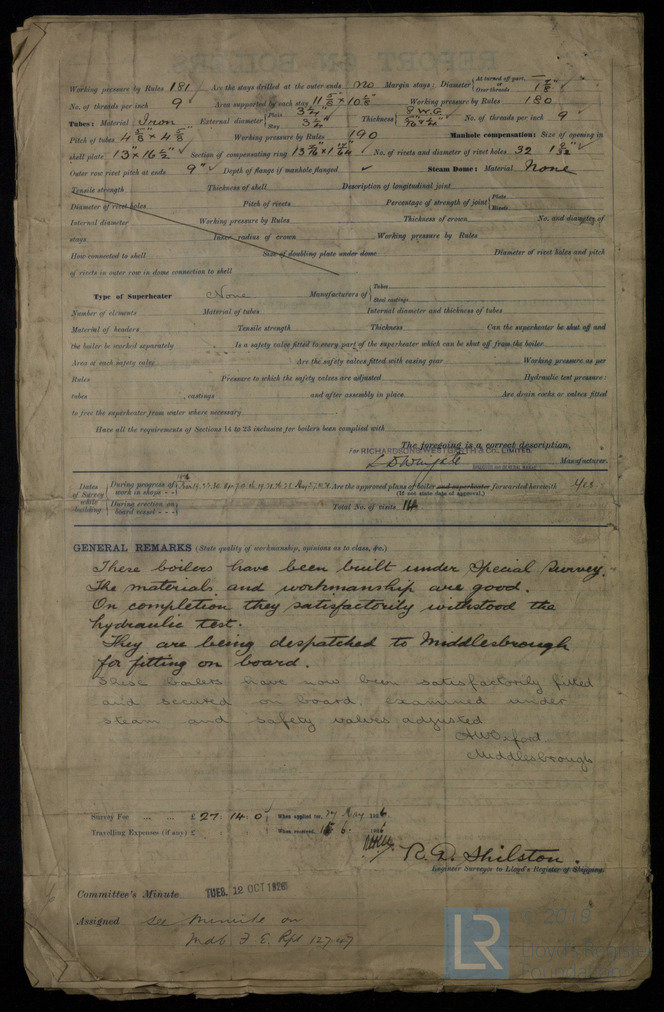 Working pressure by Rules 181 Are the stays drilled at the outer ends No Margin stays: Diameter { At turned off part, or Over threads 1 7/8"
No. of threads per inch 9 Area supported by each stay Working pressure by Rules 180
Tubes: Material Iron External diameter { Plain 3 1/4" Stay 3 1/4" Thickness { 8 W.G. No. of threads per inch 9
Pitch of tubes 4 5/8" x 4 5/8" Working pressure by Rules 190 Manhole compensation: Size of opening in
shell plate 13" x 16 1/2" Section of compensating ring No. of rivets and diameter of rivet holes 32
Outer row rivet pitch at ends 9" Depth of flange if manhole flanged Steam Dome: Material None
Tensile strength Thickness of shell Description of longitudinal joint
Diameter of rivet holes Pitch of rivets Percentage of strength of joint { Plate Rivets
Internal diameter Working pressure by Rules Thickness of crown No. and diameter of
stays Inner radius of crown Working pressure by Rules
How connected to shell Size of doubling plate under dome Diameter of rivet holes and pitch
of rivets in outer row in dome connection to shell
Type of Superheater None Manufacturers of { Tubes Steel castings
Number of elements Material of tubes Internal diameter and thickness of tubes
Material of headers Tensile strength Thickness Can the superheater be shut off and
the boiler be worked separately Is a safety valve fitted to every part of the superheater which can be shut off from the boiler
Area of each safety valve Are the safety valves fitted with easing gear Working pressure as per
Rules Pressure to which the safety valves are adjusted Hydraulic test pressure:
tubes , castings and after assembly in place Are drain cocks or valves fitted
to free the superheater from water where necessary
Have all the requirements of Sections 14 to 23 inclusive for boilers been complied with
The foregoing is a correct description,
For RICHARDSONS WESTGARTH & CO. LIMITED.
Manufacturer.
Dates of Survey while building { During progress of work in shops - - Are the approved plans of boiler and superheater forwarded herewith Yes
(If not state date of approval.)
During erection on board vessel - - - Total No. of visits 14
GENERAL REMARKS (State quality of workmanship, opinions as to class, &c.)
These boilers have been built under Special Survey.
The materials and workmanship are good.
On completion they satisfactorily withstood the
hydraulic test.
They are being despatched to Middlesbrough
for fitting on board.
These boilers have now been satisfactorily fitted
and secured on board, examined under
steam and safety valves adjusted
AWOxford
Middlesbrough
Survey Fee ... ... £ 27 : 14 : 0 When applied for, 27 May 1926
Travelling Expenses (if any) £ : : When received, 6. 1926
R. D. Shilston.
Engineer Surveyor to Lloyd's Register of Shipping.
Committee's Minute TUES. 12 OCT 1926
Assigned see Minute on
Mdb. F. E. Rpt 12747
LR
© 2019
Lloyd's Register
Foundation